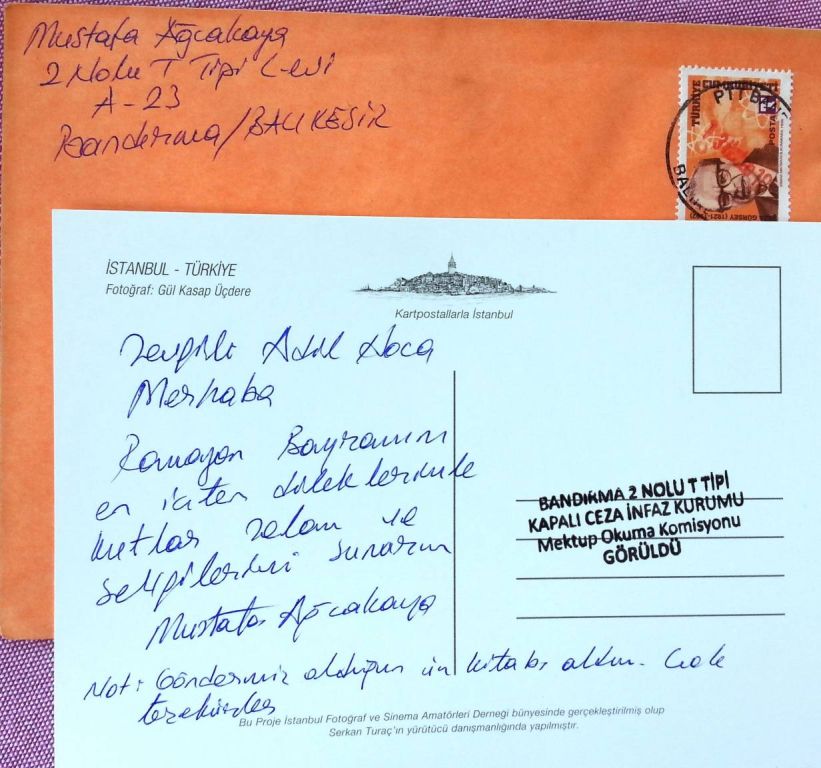 Mustafa Ağcakaya
2 Nolu T Tipi Cevi
A-23
Bandırma/BALIKESİR
TÜRKİYE CUMHURİYETİ
POSTA
PTT BA
BAL
GÜRSEY (1921-1992)
İSTANBUL - TÜRKİYE
Fotoğraf: Gül Kasap Üçdere
Kartpostallarla İstanbul
Sevgili Adil Hoca
Merhaba
Ramazan Bayramını
en içten dileklerimle
kutlar selam ve
sevgilerimi sunarım
Mustafa Ağcakaya
BANDIRMA 2 NOLU T TİPİ
KAPALI CEZA İNFAZ KURUMU
Mektup Okuma Komisyonu
GÖRÜLDÜ
Not: Göndermiş olduğun kitabı aldım. Çok
teşekürler
Bu Proje İstanbul Fotoğraf ve Sinema Amatörleri Derneği bünyesinde gerçekleştirilmiş olup
Serkan Turaç'ın yürütücü danışmanlığında yapılmıştır.